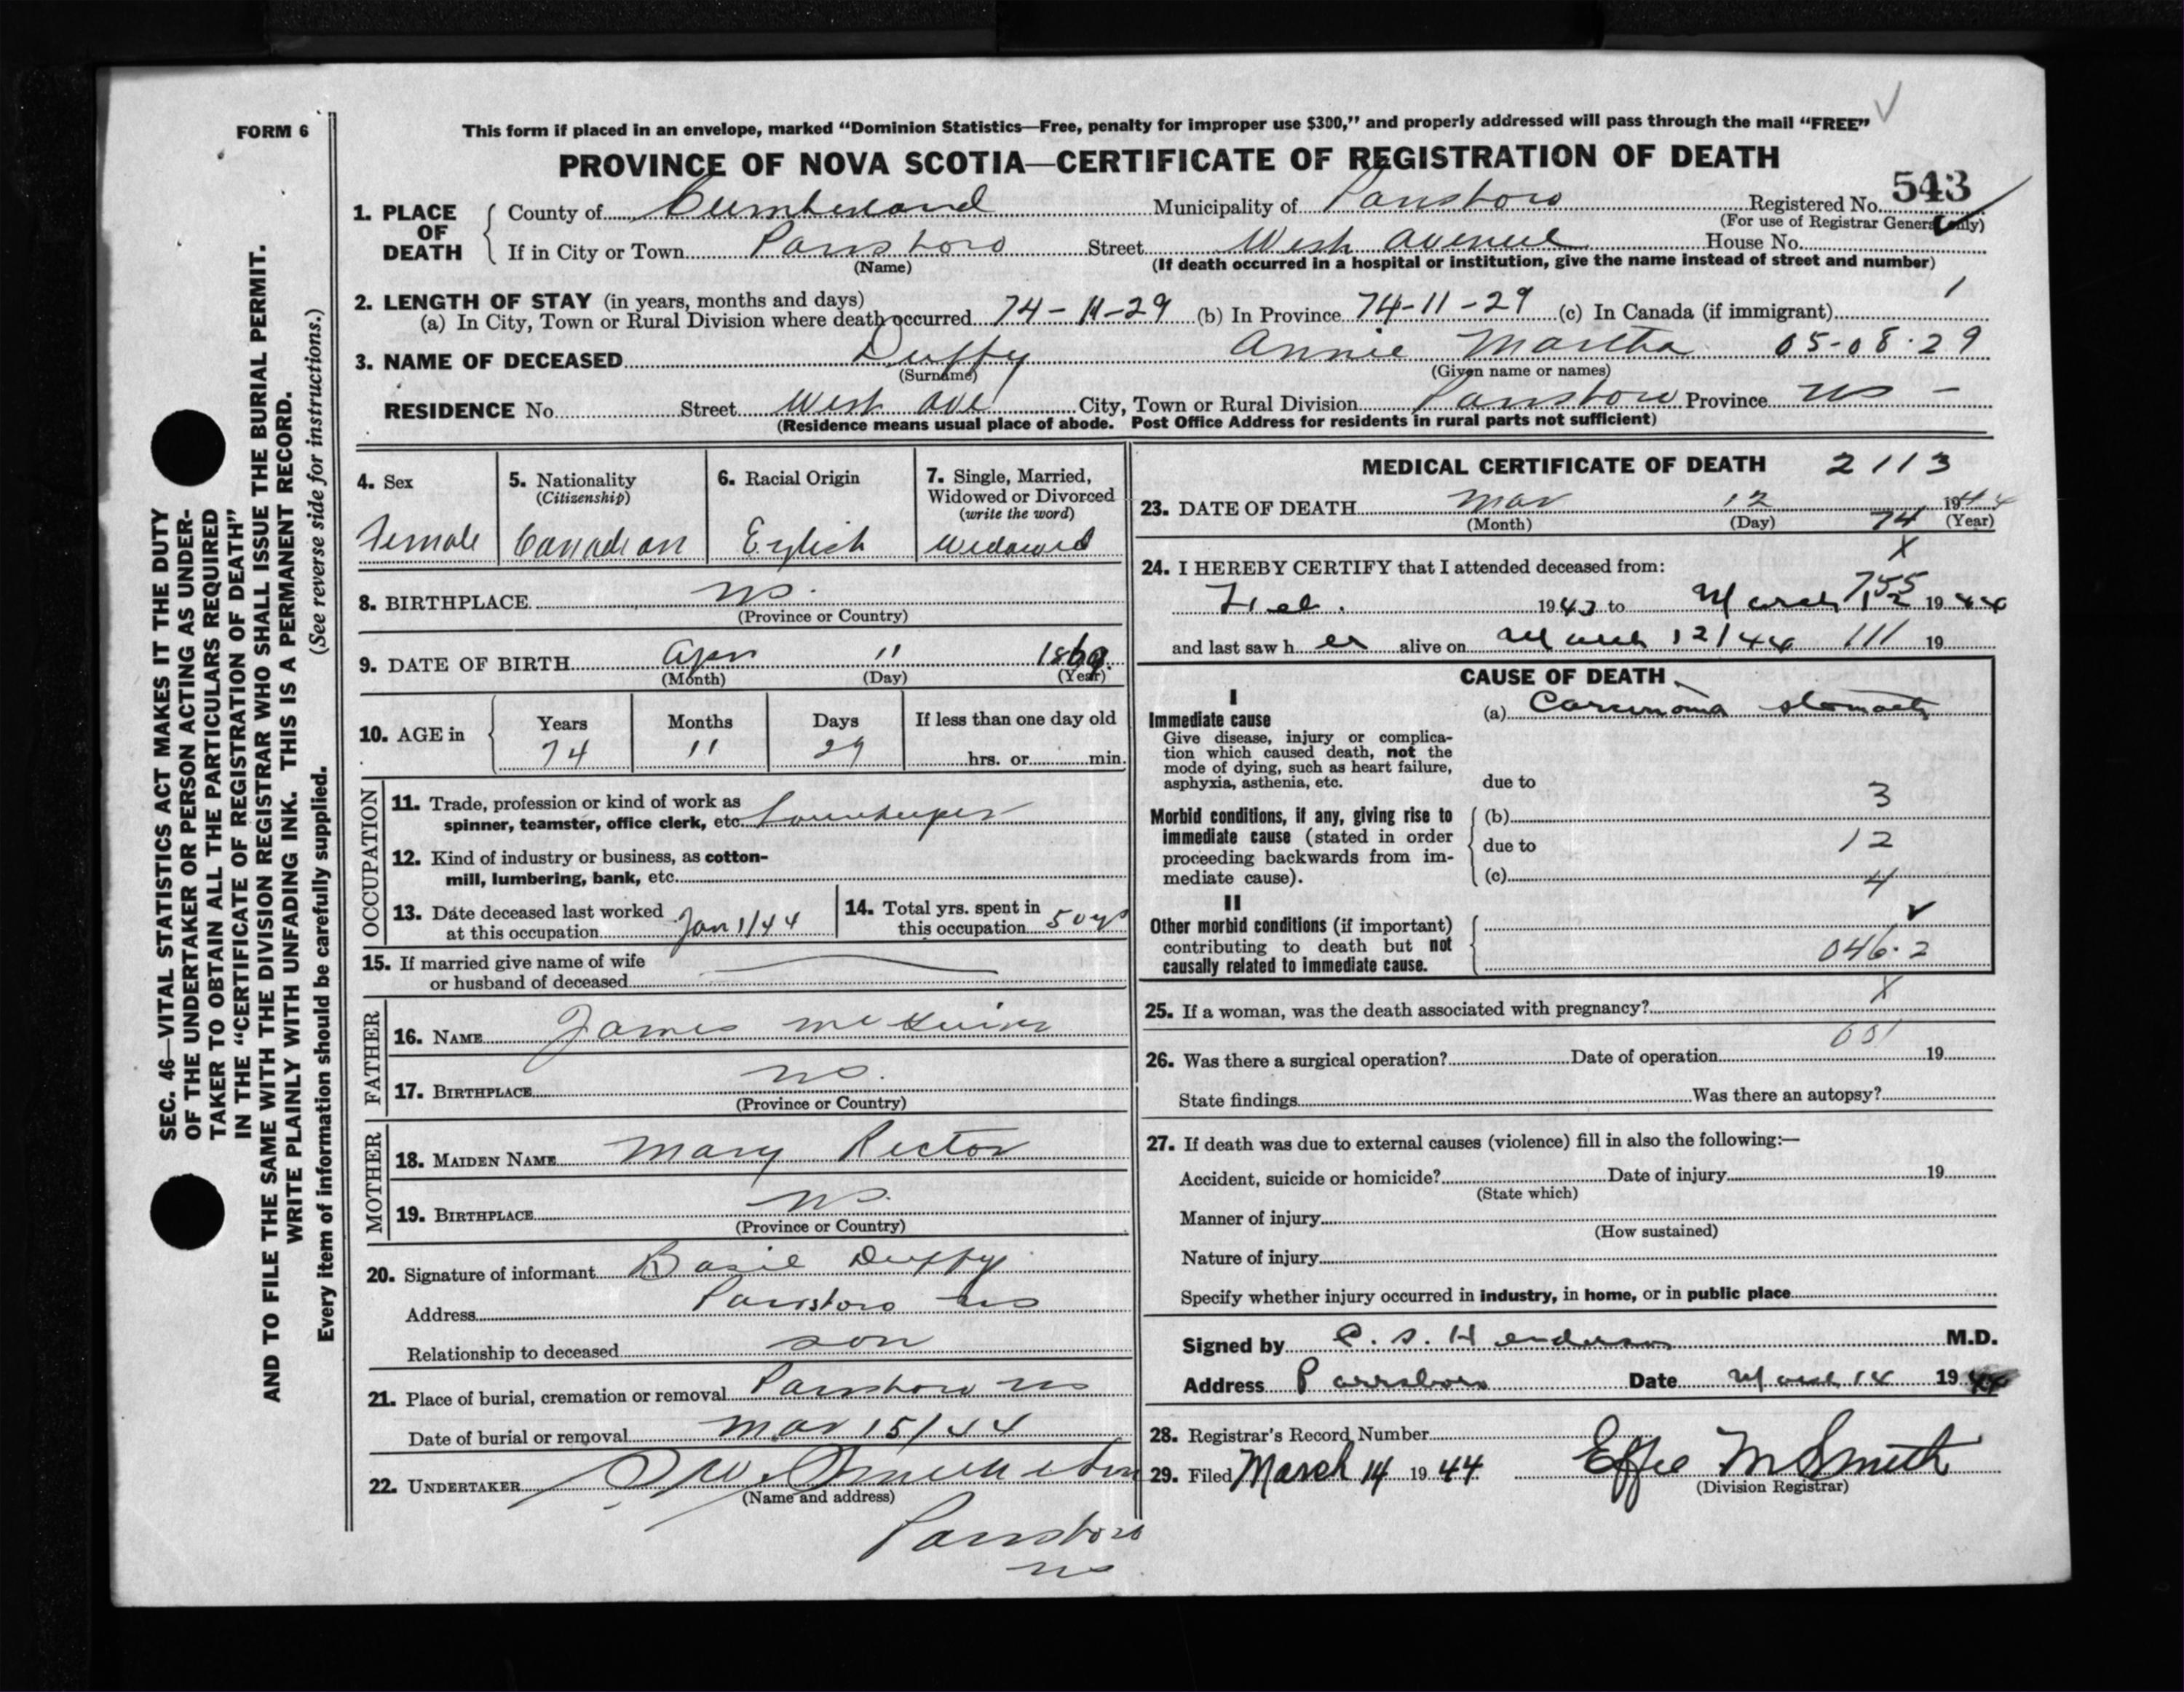 FORM 6
This form if placed in an envelope, marked “Dominion Statistics—Free, penalty for improper use $300,” and properly addressed will pass through the mail “FREE”
PROVINCE OF NOVA SCOTIA—CERTIFICATE OF REGISTRATION OF DEATH
543
1. PLACE OF DEATH County of Cumberland Municipality of Parrsboro Registered No.
(For use of Registrar General only)
If in City or Town Parrsboro Street West Avenue House No.
(Name) (If death occurred in a hospital or institution, give the name instead of street and number)
2. LENGTH OF STAY (in years, months and days) 1
(a) In City, Town or Rural Division where death occurred 74-11-29 (b) In Province 74-11-29 (c) In Canada (if immigrant)
3. NAME OF DECEASED Duffy Annie Martha 05-08-29
(Surname) (Given name or names)
RESIDENCE No. Street West Ave City, Town or Rural Division Parrsboro Province NS -
(Residence means usual place of abode. Post Office Address for residents in rural parts not sufficient)
4. Sex 5. Nationality (Citizenship) 6. Racial Origin 7. Single, Married, Widowed or Divorced (write the word)
Female Canadian English Widowed
8. BIRTHPLACE NS.
(Province or Country)
9. DATE OF BIRTH Apr 11 1869.
(Month) (Day) (Year)
10. AGE in Years Months Days If less than one day old
74 11 29 hrs. or min.
OCCUPATION
11. Trade, profession or kind of work as
spinner, teamster, office clerk, etc. housekeeper
12. Kind of industry or business, as cotton-
mill, lumbering, bank, etc.
13. Date deceased last worked at this occupation Jan 1/44 14. Total yrs. spent in this occupation 50 yrs
15. If married give name of wife
or husband of deceased
FATHER
16. NAME James
17. BIRTHPLACE NS.
(Province or Country)
MOTHER
18. MAIDEN NAME Mary Rector
19. BIRTHPLACE NS.
(Province or Country)
20. Signature of informant Basil Duffy
Address Parrsboro NS
Relationship to deceased son
21. Place of burial, cremation or removal Parrsboro NS
Date of burial or removal Mar 15/44
22. UNDERTAKER
(Name and address)
Parrsboro
NS
MEDICAL CERTIFICATE OF DEATH 2113
23. DATE OF DEATH Mar 12 1944
(Month) (Day) 74 (Year)
X
24. I HEREBY CERTIFY that I attended deceased from:
755
Feb. 1943 to March 12 1944
and last saw her alive on March 12/44 111 19
CAUSE OF DEATH
I
Immediate cause (a) Carcinoma stomach
Give disease, injury or complica-
tion which caused death, not the
mode of dying, such as heart failure,
asphyxia, asthenia, etc. due to
3
Morbid conditions, if any, giving rise to (b)
immediate cause (stated in order due to 12
proceeding backwards from im-
mediate cause). (c) 4
II
Other morbid conditions (if important)
contributing to death but not
causally related to immediate cause. 046.2
X
25. If a woman, was the death associated with pregnancy?
26. Was there a surgical operation? Date of operation 19
State findings Was there an autopsy?
27. If death was due to external causes (violence) fill in also the following:—
Accident, suicide or homicide? Date of injury 19
(State which)
Manner of injury
(How sustained)
Nature of injury
Specify whether injury occurred in industry, in home, or in public place
Signed by C. S. Henderson M.D.
Address Parrsboro Date March 14 1944
28. Registrar's Record Number
29. Filed March 14 1944 Effie M Smith
(Division Registrar)
SEC. 46—VITAL STATISTICS ACT MAKES IT THE DUTY
OF THE UNDERTAKER OR PERSON ACTING AS UNDER-
TAKER TO OBTAIN ALL THE PARTICULARS REQUIRED
IN THE “CERTIFICATE OF REGISTRATION OF DEATH”
AND TO FILE THE SAME WITH THE DIVISION REGISTRAR WHO SHALL ISSUE THE BURIAL PERMIT.
WRITE PLAINLY WITH UNFADING INK. THIS IS A PERMANENT RECORD.
Every item of information should be carefully supplied. (See reverse side for instructions.)